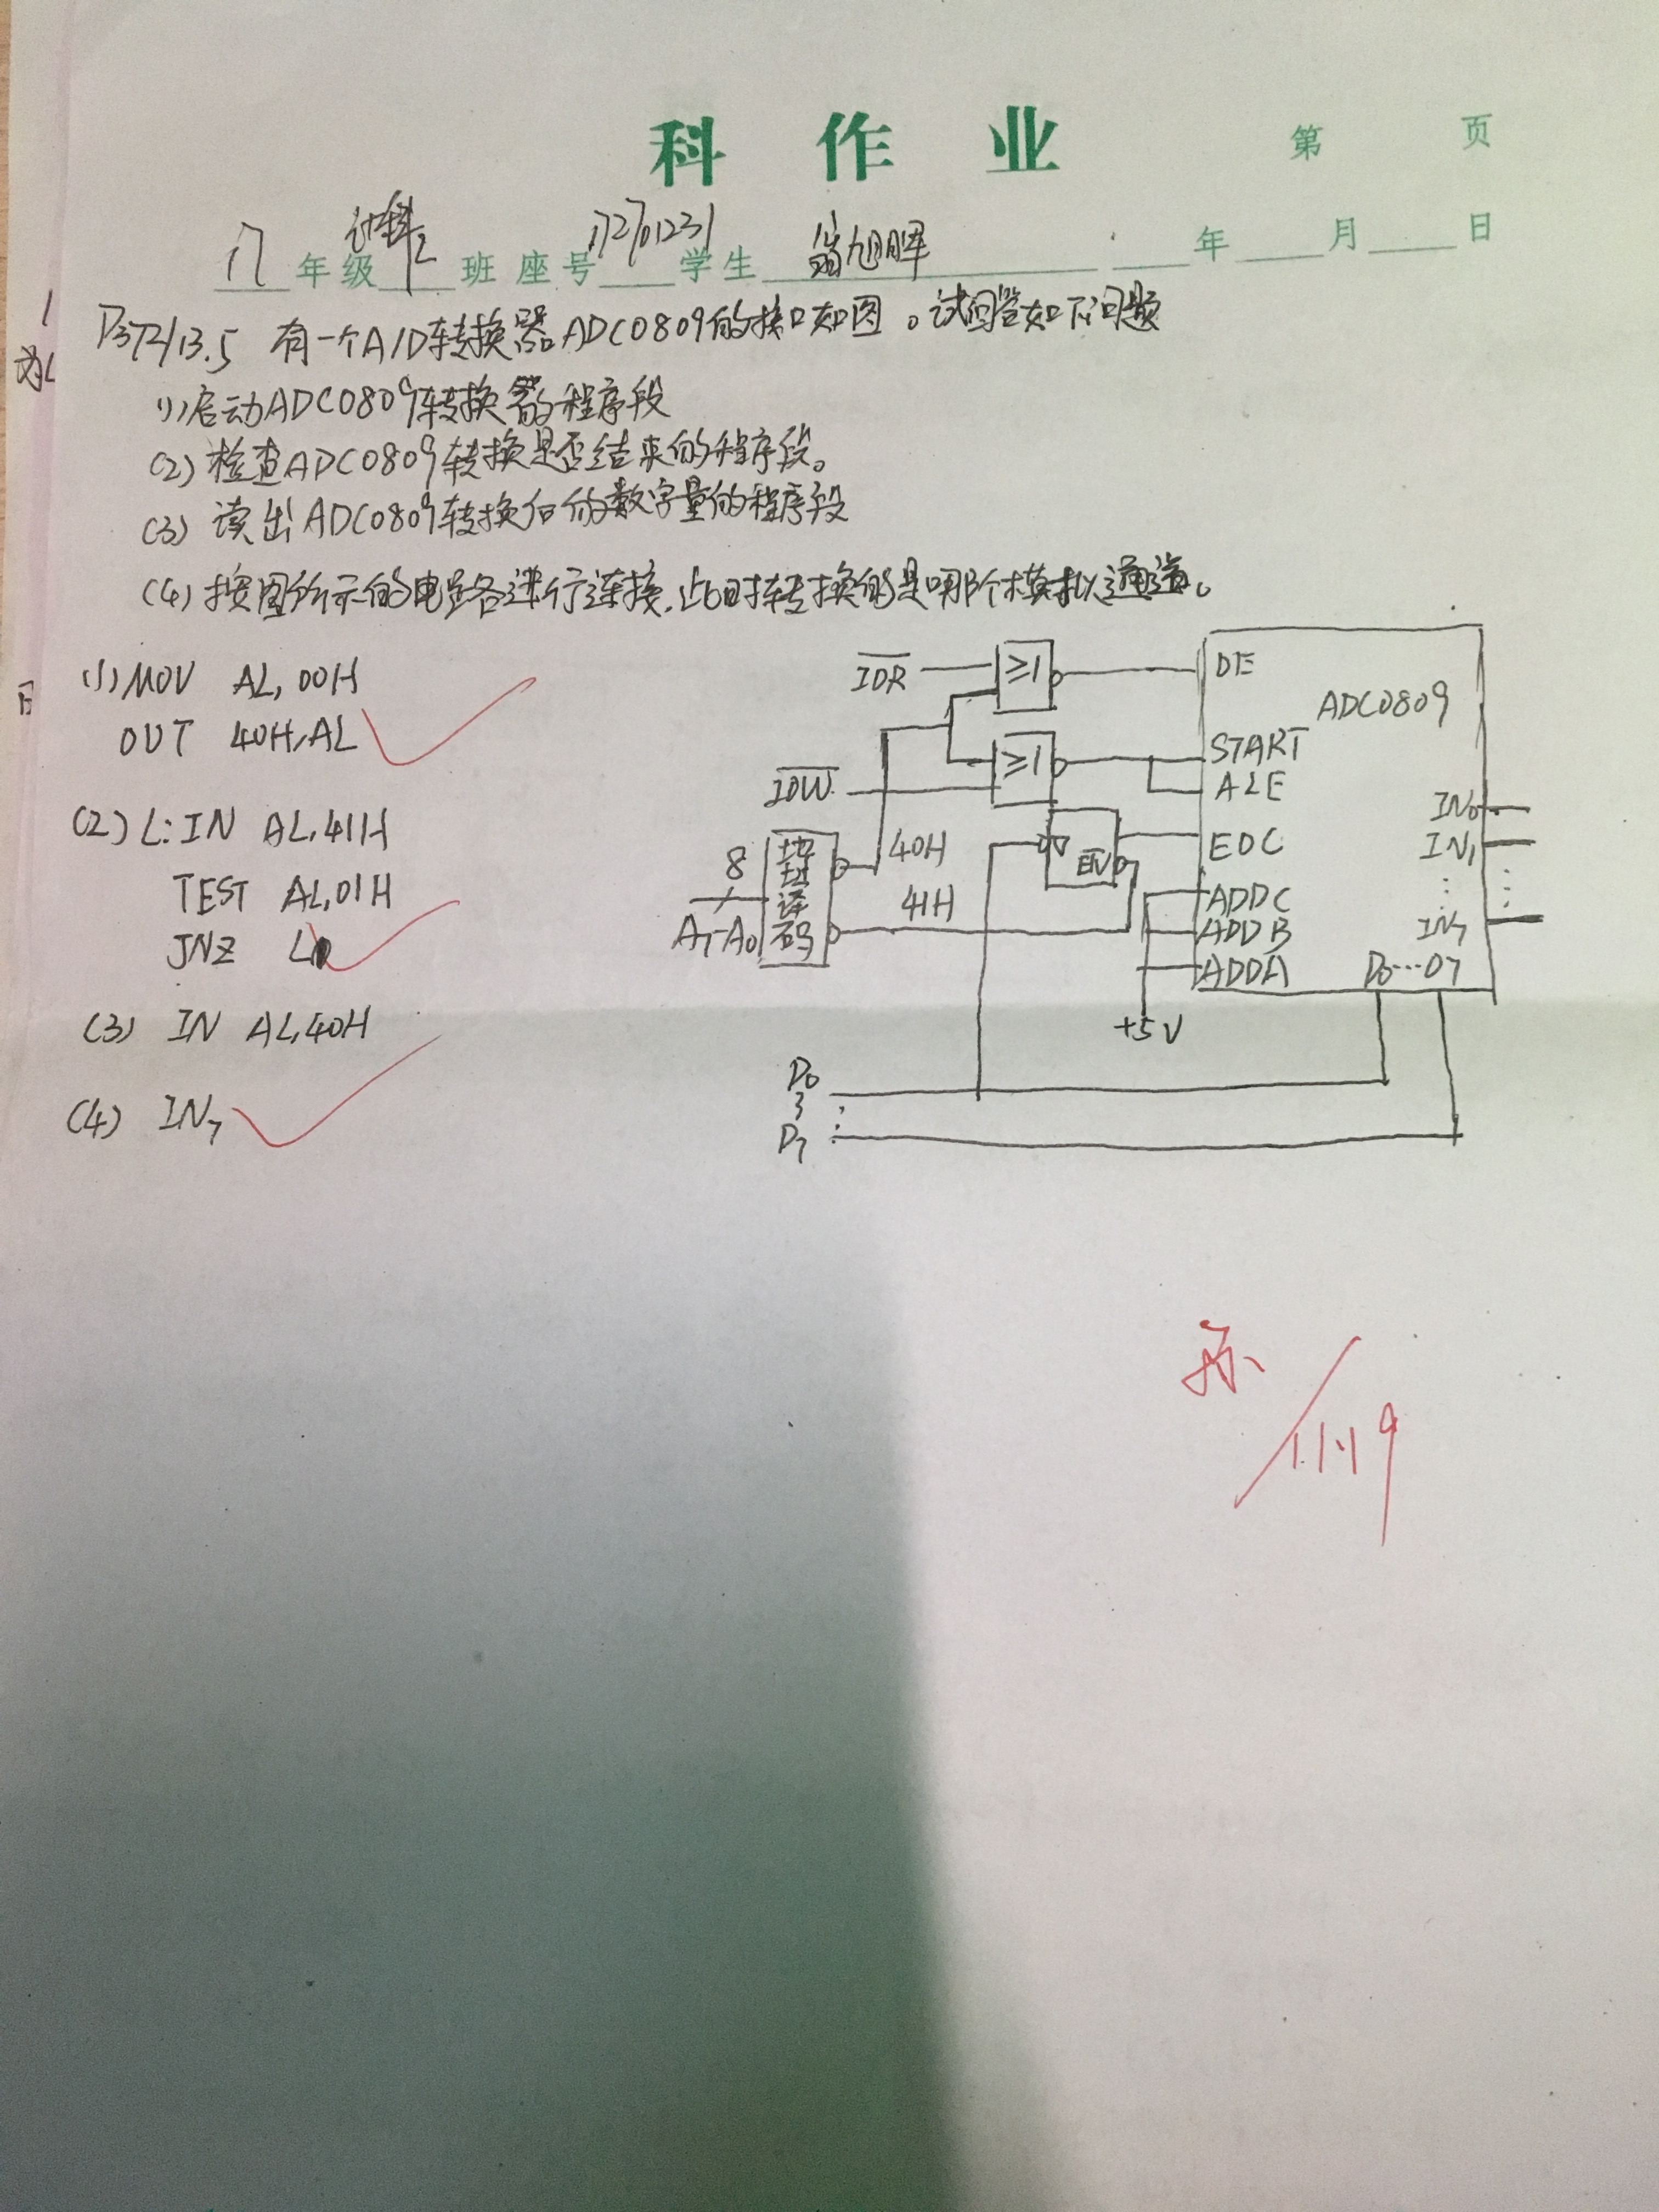 科作业 第 页
17年级计科2班座号17201231学生翁旭辉 年 月 日
P372/13.5 有一个A/D转换器ADC0809的接口如图。试回答如下问题
(1)启动ADC0809转换的程序段
(2)检查ADC0809转换是否结束的程序段。
(3)读出ADC0809转换后的数字量的程序段
(4)按图所示的电路进行连接,此时转换的是哪个模拟通道。
(1) MOV AL, 00H
OUT 40H, AL
(2) L: IN AL, 41H
TEST AL, 01H
JNZ L
(3) IN AL, 40H
(4) IN7
IOR
≥1
OE
ADC0809
IOW
≥1
START
ALE
IN0
8
地址译码
40H
EN
EOC
IN1
A7-A0
41H
ADDC
ADDB
IN7
ADDA
D0…D7
+5V
D0
D7
11.19